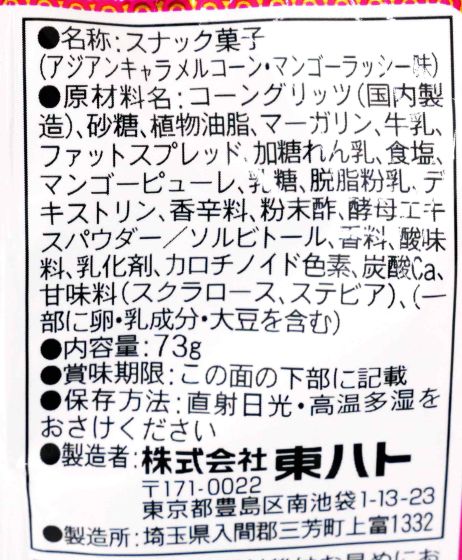 ●名称:スナック菓子
(アジアンキャラメルコーン・マンゴーラッシー味)
●原材料名:コーングリッツ(国内製
造)、砂糖、植物油脂、マーガリン、牛乳、
ファットスプレッド、加糖れん乳、食塩、
マンゴーピューレ、乳糖、脱脂粉乳、デ
キストリン、香辛料、粉末酢、酵母エキ
スパウダー/ソルビトール、香料、酸味
料、乳化剤、カロチノイド色素、炭酸Ca、
甘味料(スクラロース、ステビア)、(一
部に卵・乳成分・大豆を含む)
●内容量:73g
●賞味期限:この面の下部に記載
●保存方法:直射日光・高温多湿を
おさけください
●製造者:株式会社 東ハト
〒171-0022
東京都豊島区南池袋1-13-23
●製造所:埼玉県入間郡三芳町上富1332